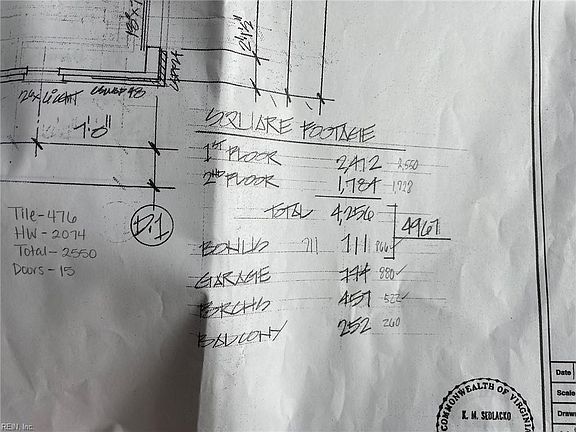 18"x
2'-1½"
24x LIGHT
1'-0"
SQUARE FOOTAGE
1ST FLOOR 2,472 2,550
2ND FLOOR 1,784 1,728
TOTAL 4,256 4967
BONUS 711 711
GARAGE 880✓
PORCHS 457 522✓
BALCONY 252 260
Tile-476
HW-2074
Total-2550
Doors-15
D.1
COMMONWEALTH OF VIRGINIA
K. M. SEDLACKO
Date
Scale
Drawn
REIN, Inc.